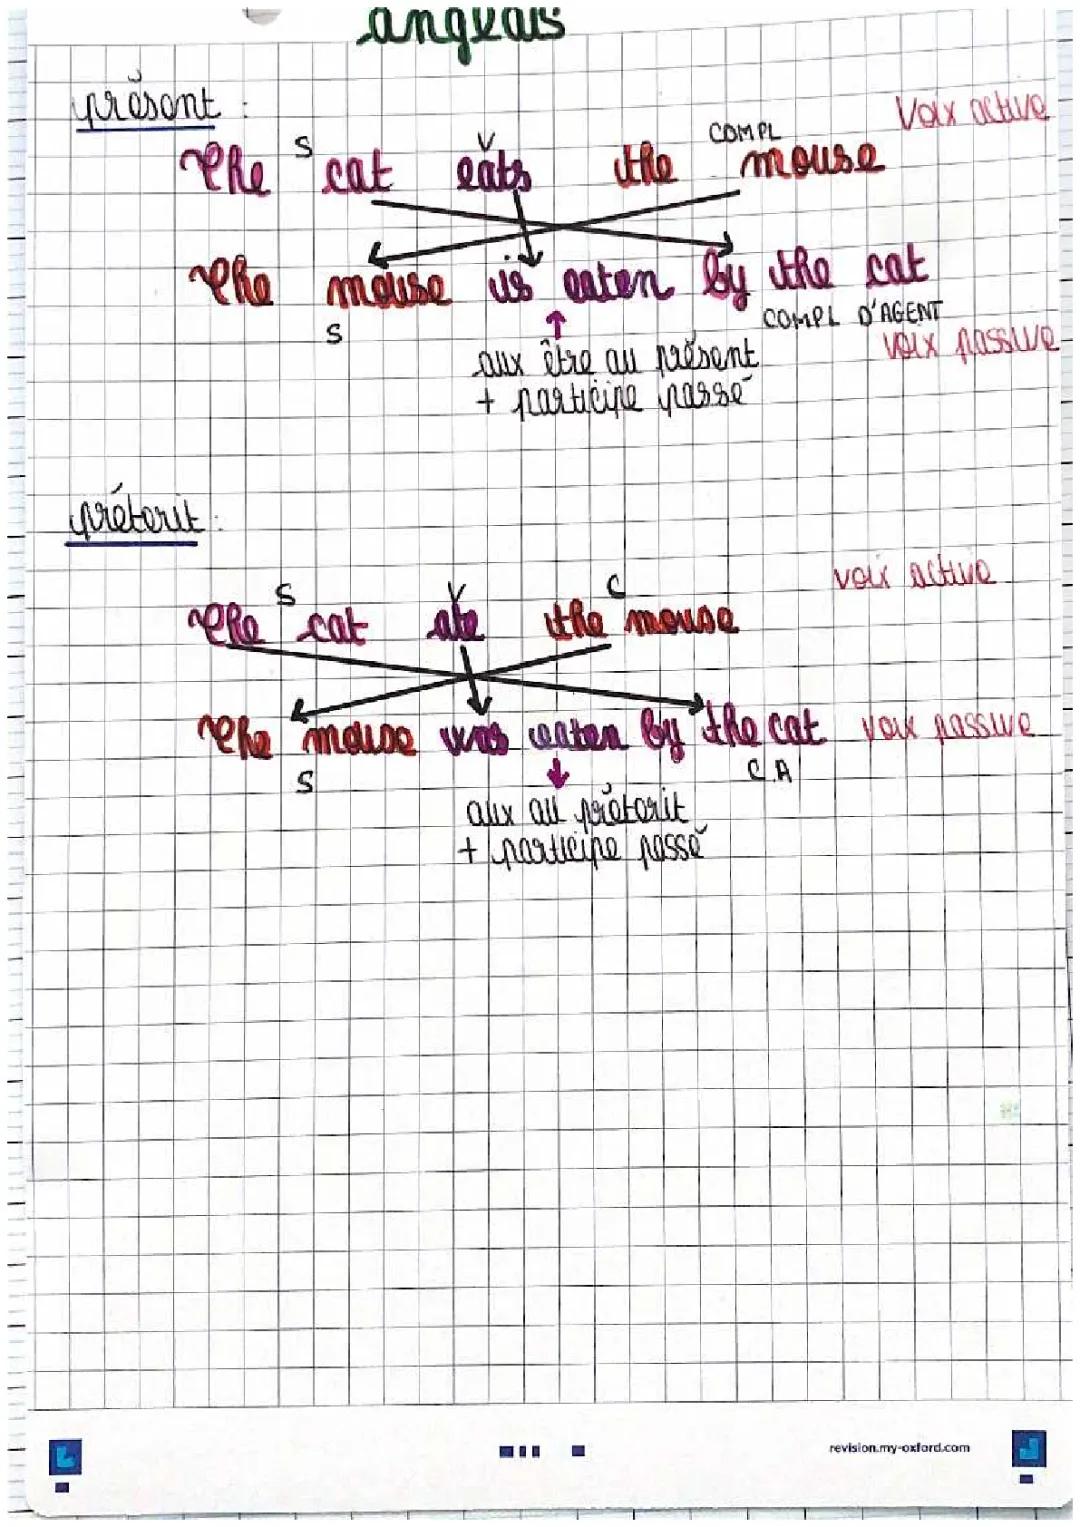 anglais
présent :
Voix active
S V COMPL
The cat eats the mouse
The mouse is eaten by the cat
S COMPL D'AGENT
voix passive
aux être au présent
+ participe passé
prétérit :
voix active
S V C
The cat ate the mouse
The mouse was eaten by the cat voix passive
S C A
aux au prétérit
+ participe passé
revision.my-oxford.com